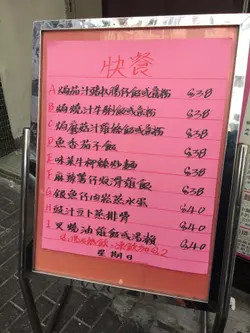 快餐
A 焗茄汁豬扒腸仔飯或意粉 $38
B 焗燒汁牛脷飯或意粉 $38
C 焗蘑菇汁雞絲飯或意粉 $38
D 魚香茄子飯 $38
E 味菜牛柳絲炒麵 $38
F 麻辣薯仔炆滑雞飯 $38
G 銀魚仔肉崧蒸水蛋 $40
H 豉汁豆卜蒸排骨 $40
I 叉燒油雞飯或湯瀨 $40
送湯或熱飲,凍飲加$2
星期日